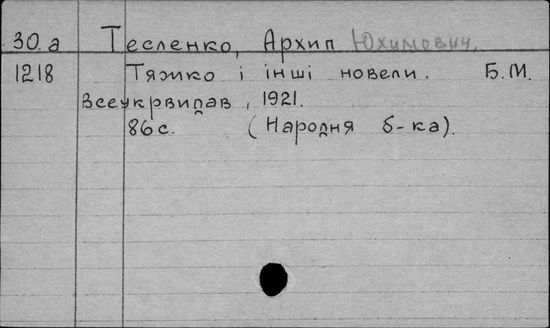 30.а Тесленко, Архип Юхимович.
1218 Тяжко і інші новели. Б.М.
Всеукрвидав, 1921.
86с. (Народня б-ка).